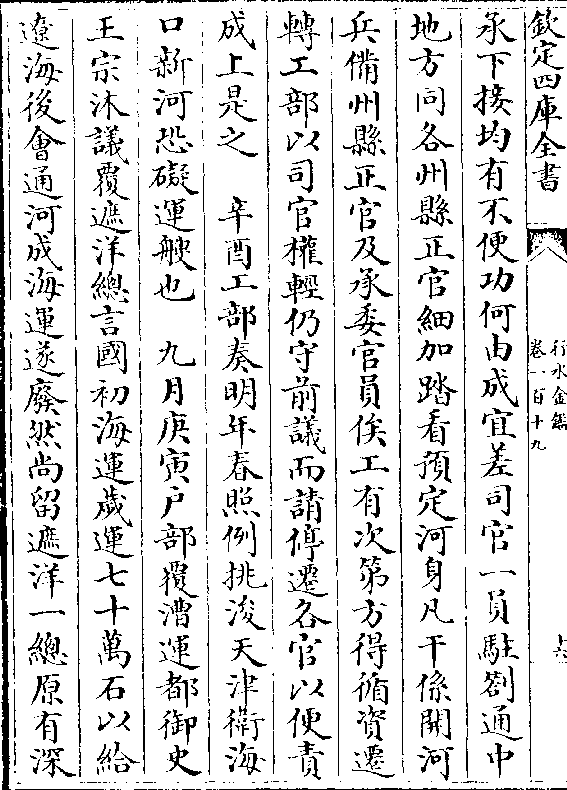 欽定四庫全書
行水金鑑
卷一百十九
承下接均有不便功何由成宜差司官一員駐劄通中
地方同各州縣正官細加踏看預定河身凡干係開河
兵備州縣正官及承委官員俟工有次第方得循資遷
轉工部以司官權輕仍守前議而請停遷各官以便責
成上是之　辛酉工部奏明年春照例挑浚天津衛海
口新河恐礙運艘也　九月庚寅户部覆漕運都御史
王宗沐議覆遮洋總言國初海運歲運七十萬石以給
遼海後會通河成海運遂廢然尚留遮洋一總原有深